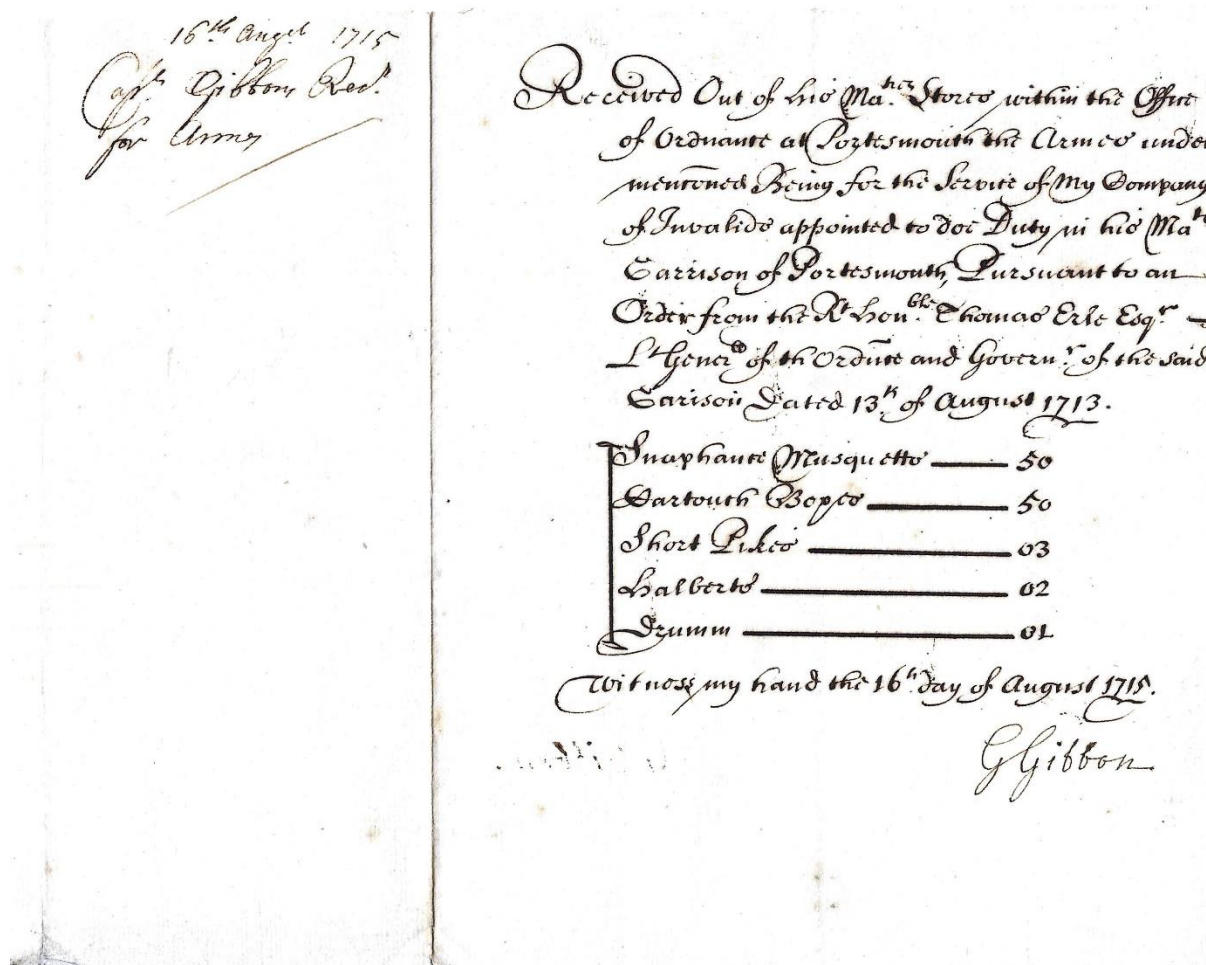 16th Augst 1715
Capt Gibbons Rect
for Armes
Received Out of his Maties Stores within the Office
of Ordnance at Portesmouth the Armes under
mentoned Being for the Service of My Company
of Invalids appointed to doe Duty in his Mats
Garrison of Portesmouth, Pursuant to an
Order from the Rt Honble Thomas Erle Esqr
Lt Generall of th Ordnce and Governr of the said
Garison Dated 13th of August 1713.
Snaphance Musquetts 50
Cartouch Boxes 50
Short Pikes 03
Halberts 02
Drumm 01
Witness my hand the 16th day of August 1715.
GGibbon